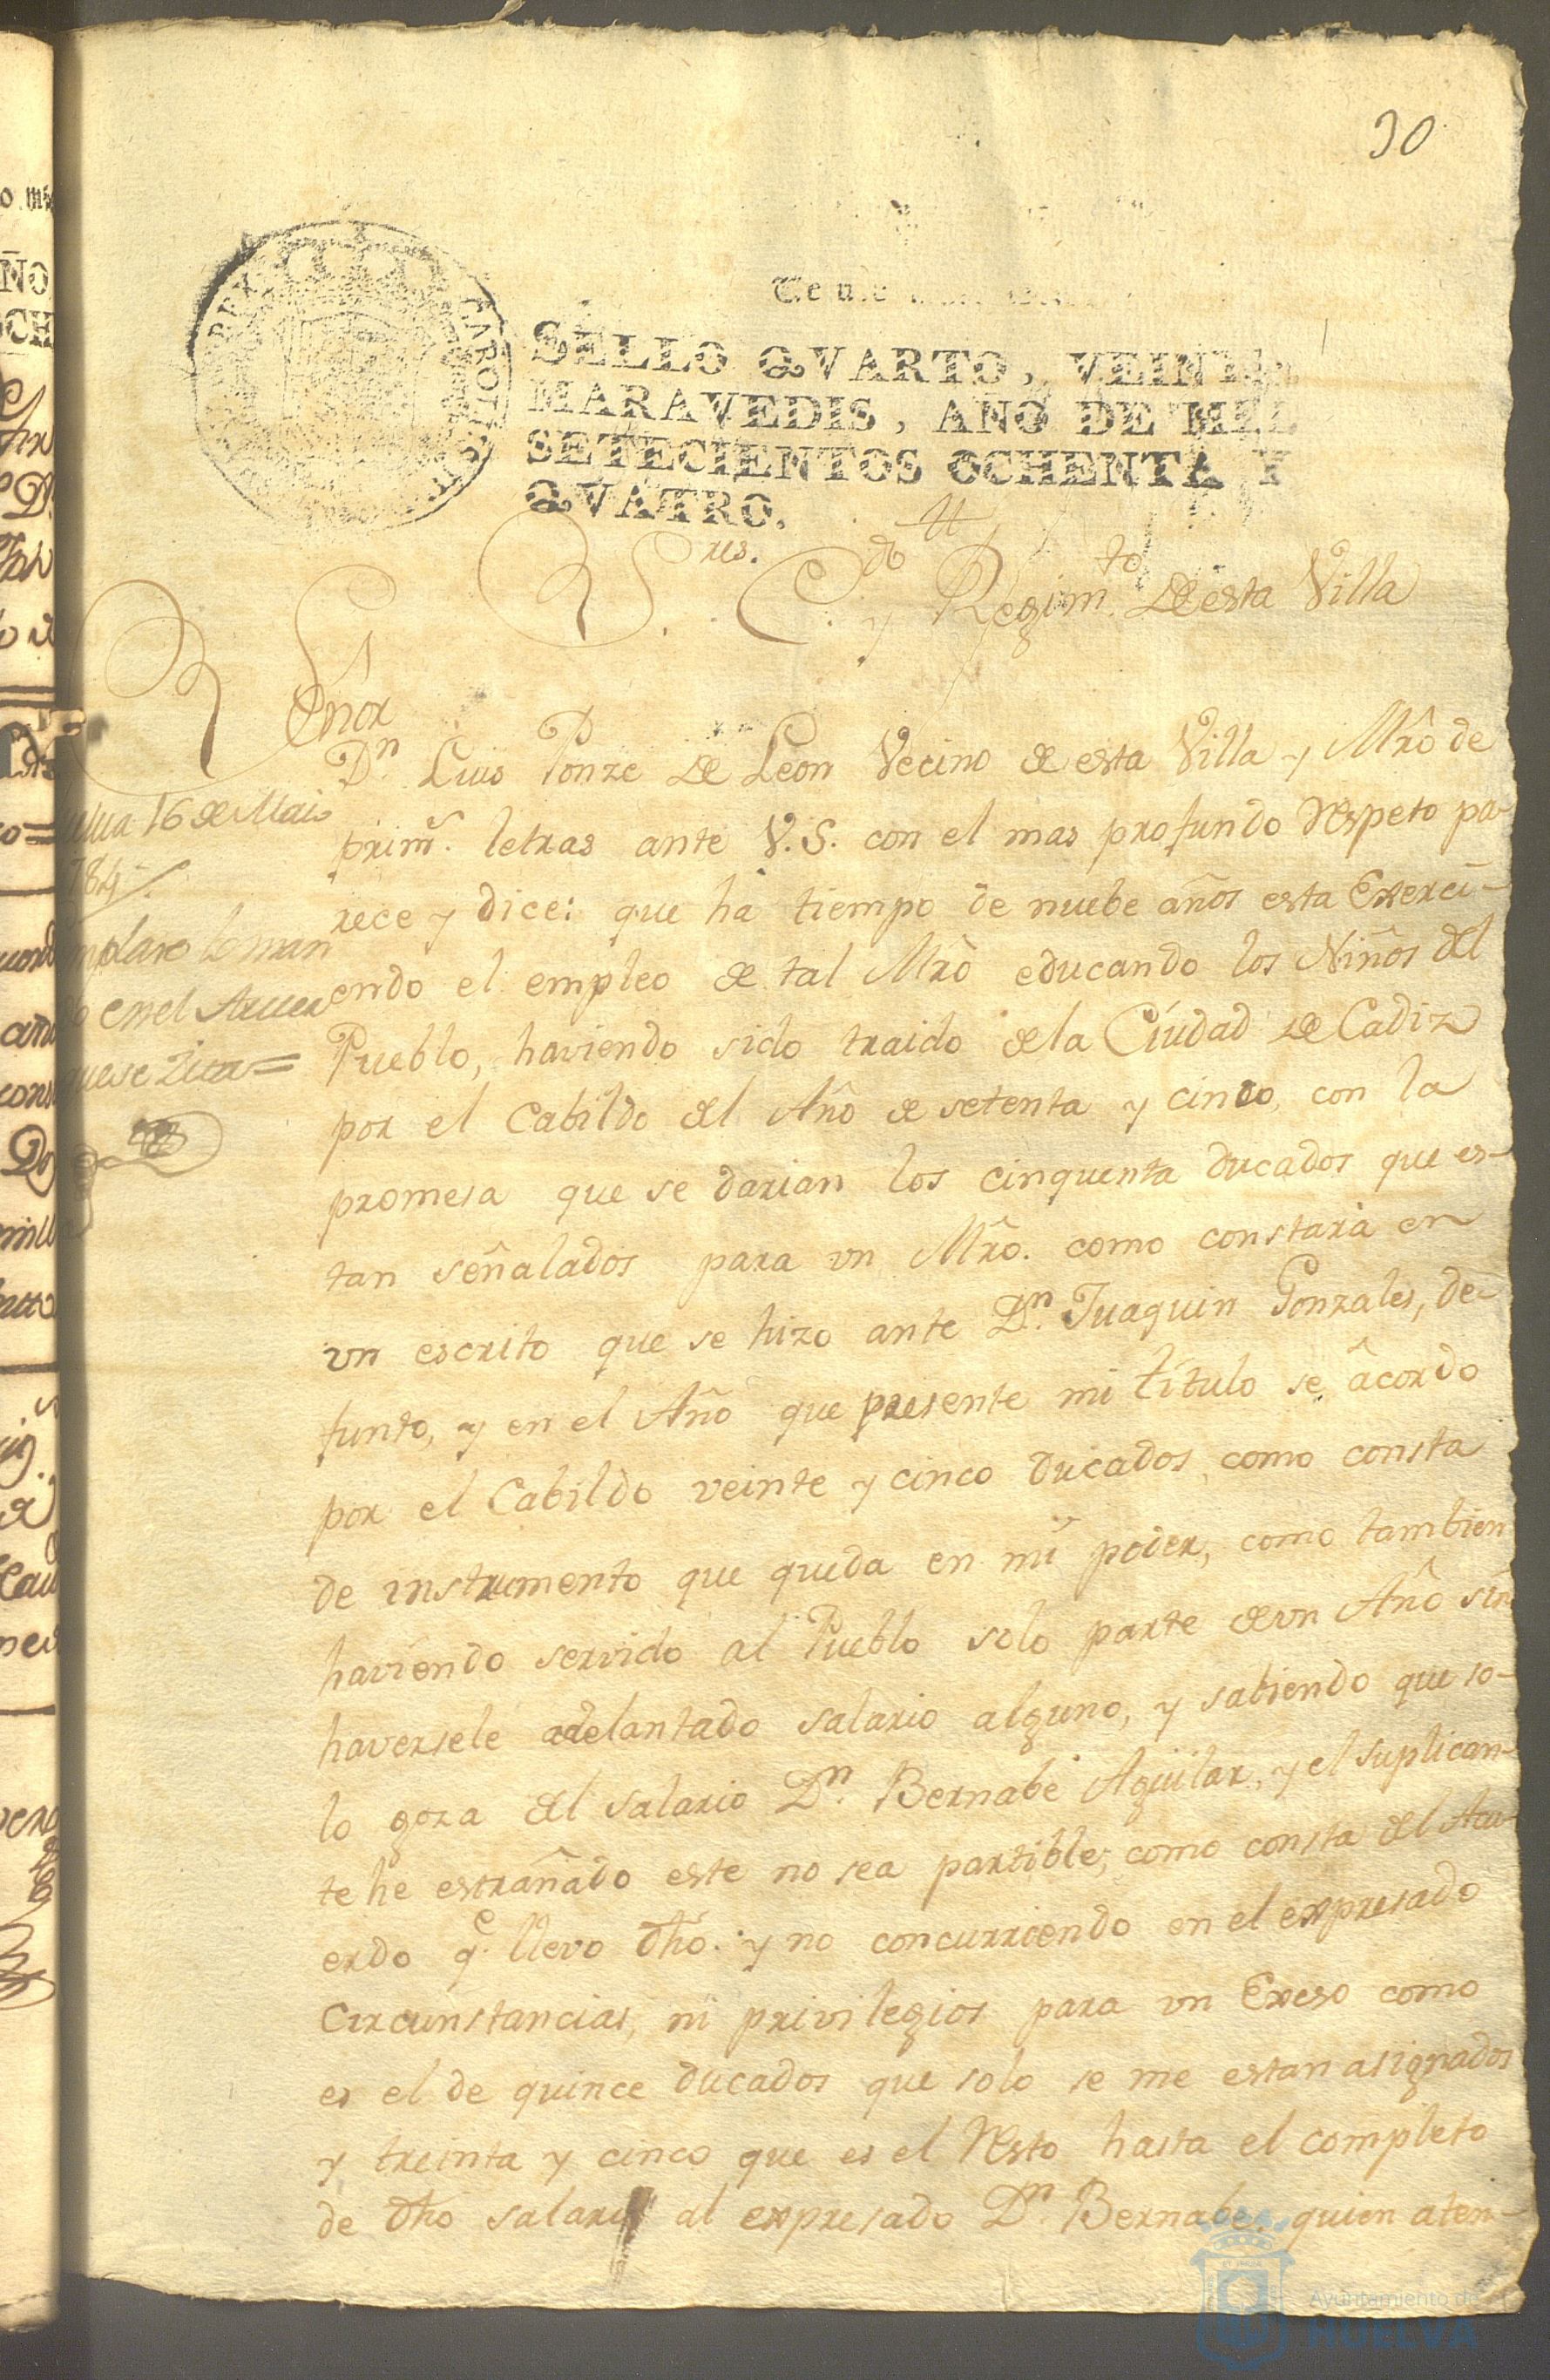 30
SELLO QVARTO, VEINTE
MARAVEDIS, AÑO DE MIL
SETECIENTOS OCHENTA Y
QVATRO.
S.res. C.do y Regim.to de esta Villa
Señor
D.n Luis Ponze de Leon Vecino de esta Villa y Mrô de
prim.s letras ante V.S. con el mas profundo Respeto pa-
rece y dice: que ha tiempo de nuebe años esta Exerci-
endo el empleo de tal Mrô educando los Niños del
Pueblo, haviendo sido traido de la Ciudad de Cadiz
por el Cabildo del Año de setenta y cinco, con la
promesa que se darian los cinquenta ducados que es-
tan señalados para vn Mrô. como constarà en
vn escrito que se hizo ante D.n Juaquin Gonzales, de-
funto, y en el Año que presente mi título se âcordo
por el Cabildo veinte y cinco ducados, como consta
de instrumento que queda en mi poder, como tambien
haviendo servido al Pueblo solo parte de vn Año sin
haversele adelantado salario alguno, y sabiendo que so-
lo goza del salario D.n Bernabe Aguilar, y el suplican-
te he estrañado este no sea partible, como consta del Acu-
erdo q.e llevo dhô. y no concurriendo en el expresado
Circunstancias, ni privilegios para vn Exeso como
es el de quince ducados que solo se me estan asignados
y treinta y cinco que es el Resto hasta el completo
de dho salario al expresado D.n Bernabe. quien aten-
16 de Maio
784
lo man
en el Acuer
Ayuntamiento de
HUELVA